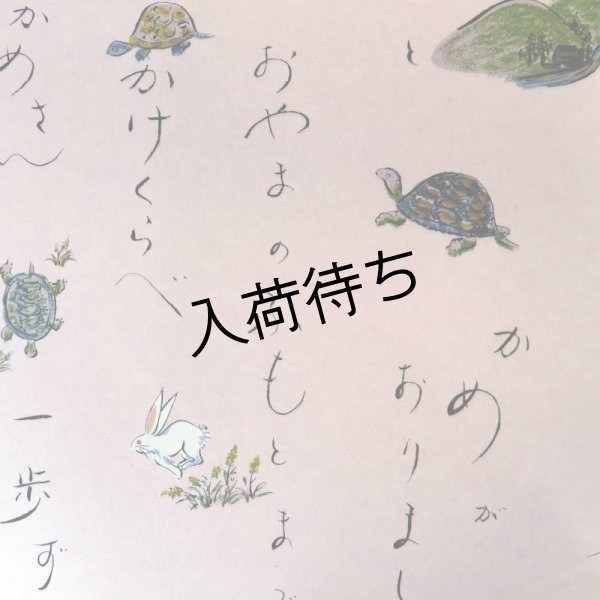 と
かめが
おりまし
おやまのふもとま
かけくらべ
かめさん
一歩ず
入荷待ち